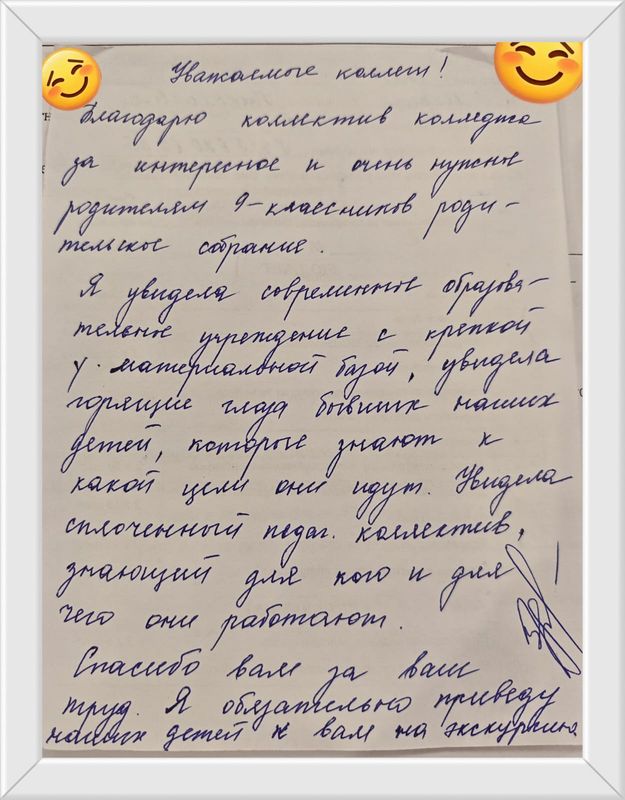 Уважаемые коллеги!
Благодарю коллектив колледжа
за интересное и очень нужное
родителям 9-классников роди-
тельское собрание.
Я увидела современное образова-
тельное учреждение с крепкой
у. материальной базой, увидела
горящие глаза бывших наших
детей, которые знают к
какой цели они идут. Увидела
сплоченный педаг. коллектив,
знающий для кого и для
чего они работают.
Спасибо вам за ваш
труд. Я обязательно приведу
наших детей к вам на экскурсию